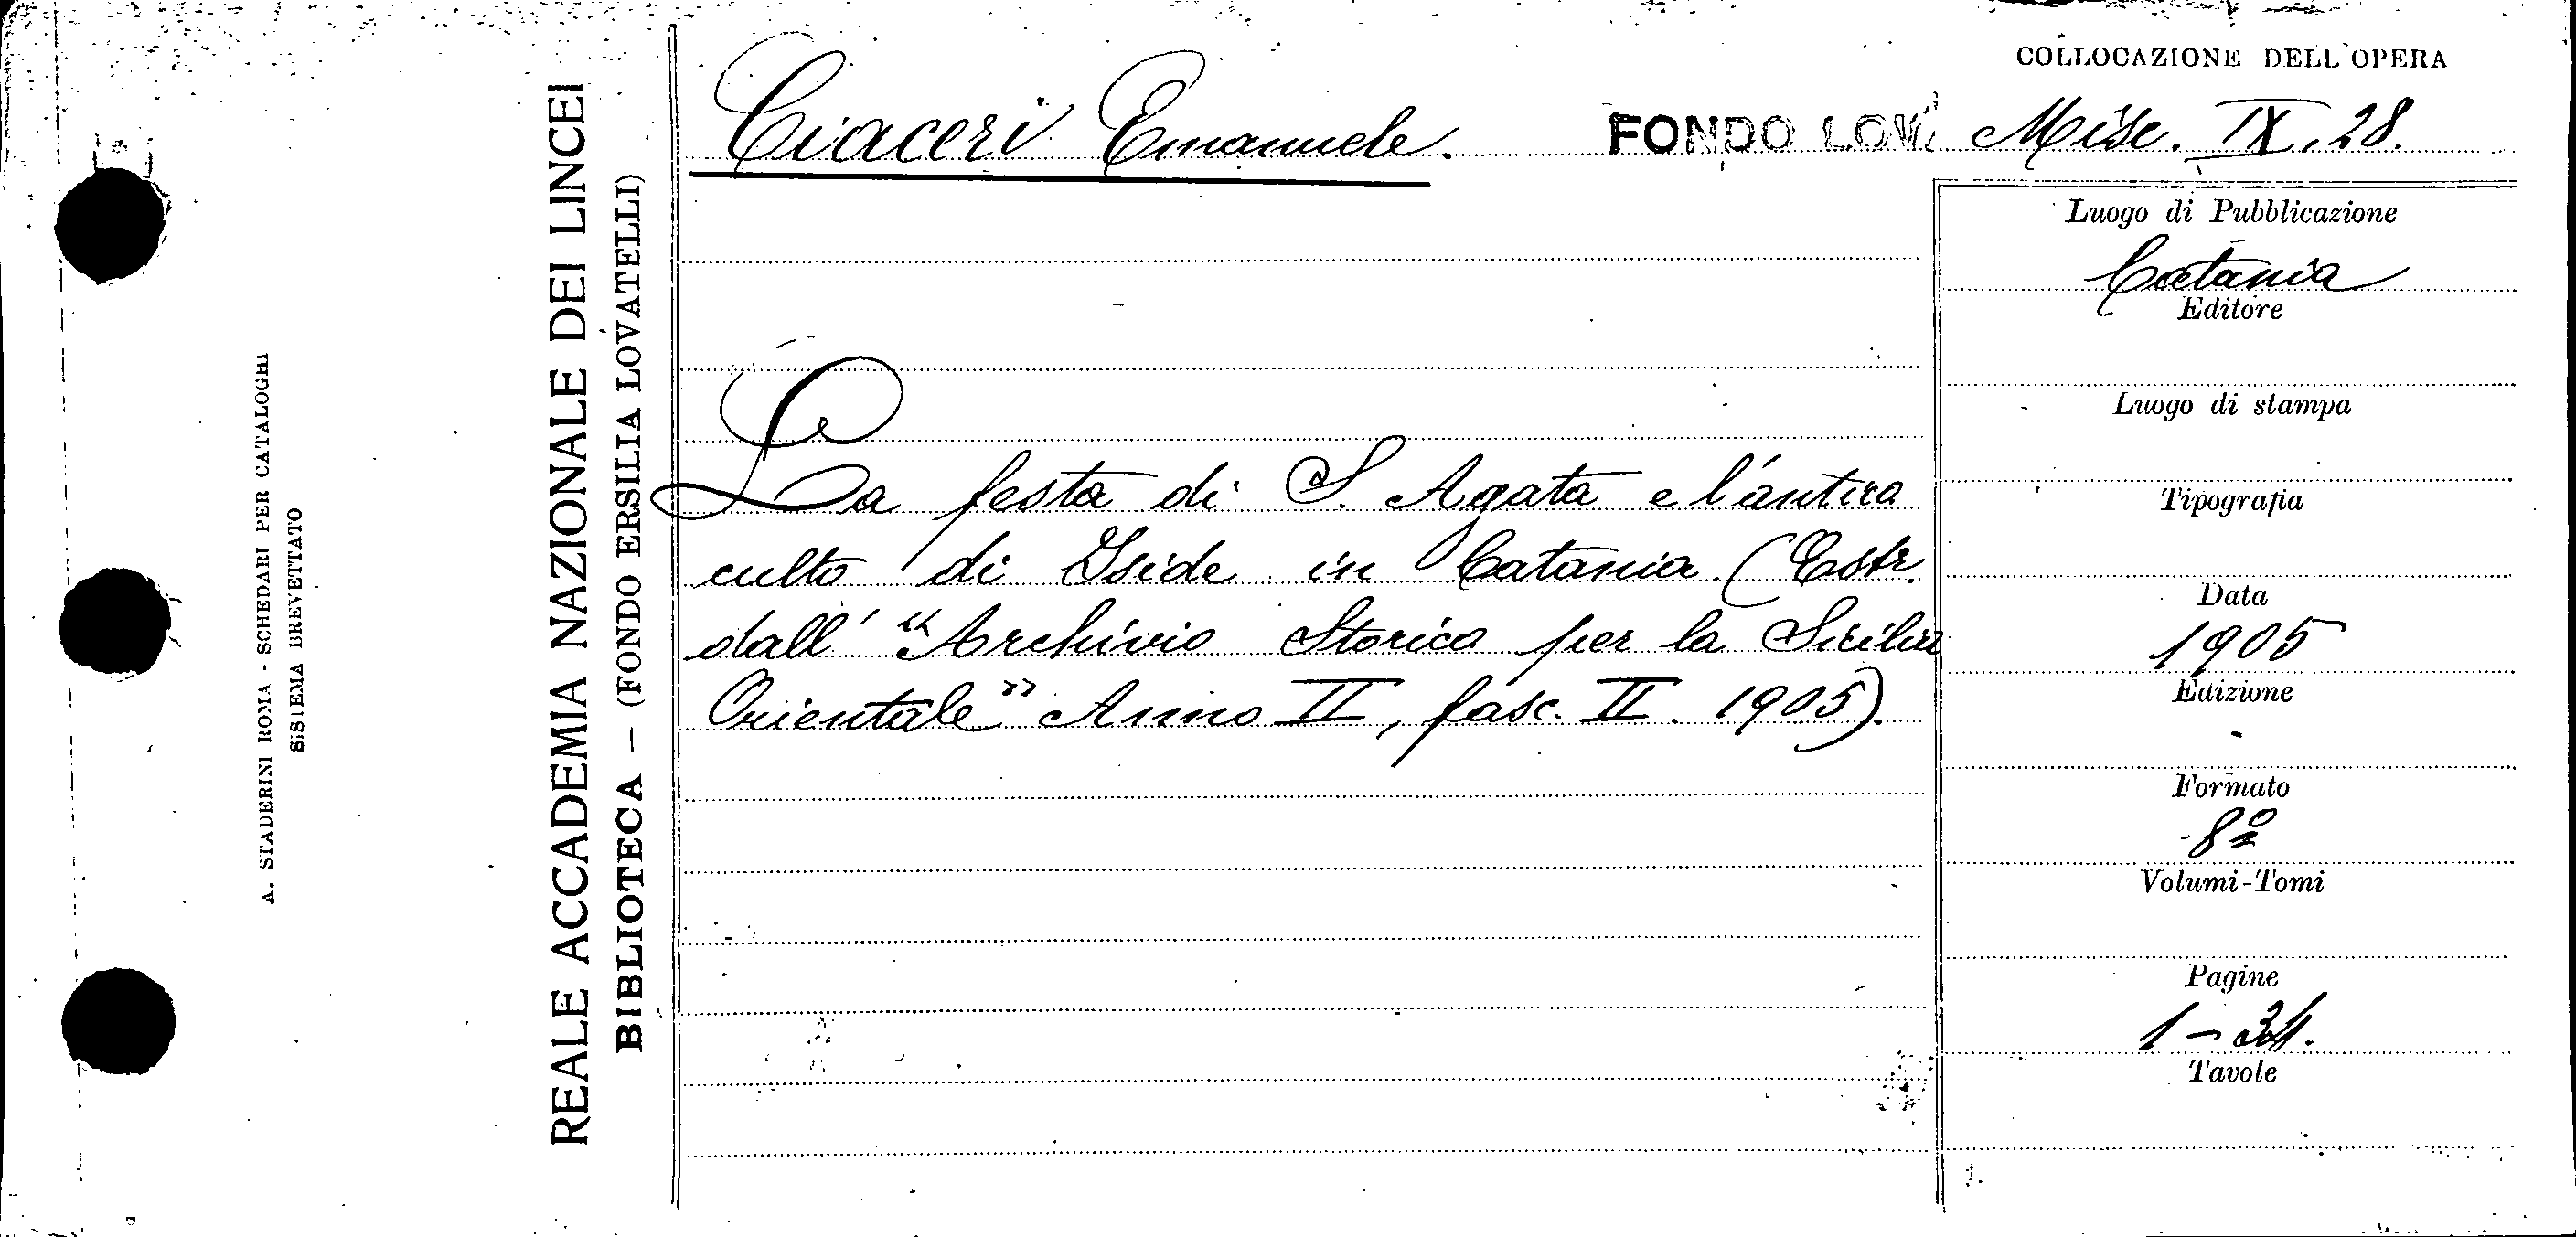 A. STADERINI ROMA - SCHEDARI PER CATALOGHI
SISTEMA BREVETTATO
REALE ACCADEMIA NAZIONALE DEI LINCEI
BIBLIOTECA — (FONDO ERSILIA LOVATELLI)
Ciaceri Emanuele.
FONDO LOV.
COLLOCAZIONE DELL'OPERA
Misc. IX. 28.
La festa di S. Agata e l'antico
culto di Iside in Catania. (Estr.
dall' "Archivio Storico per la Sicilia
Orientale" Anno II, fasc. II. 1905).
Luogo di Pubblicazione
Catania
Editore
Luogo di stampa
Tipografia
Data
1905
Edizione
-
Formato
8º
Volumi-Tomi
Pagine
1-34.
Tavole